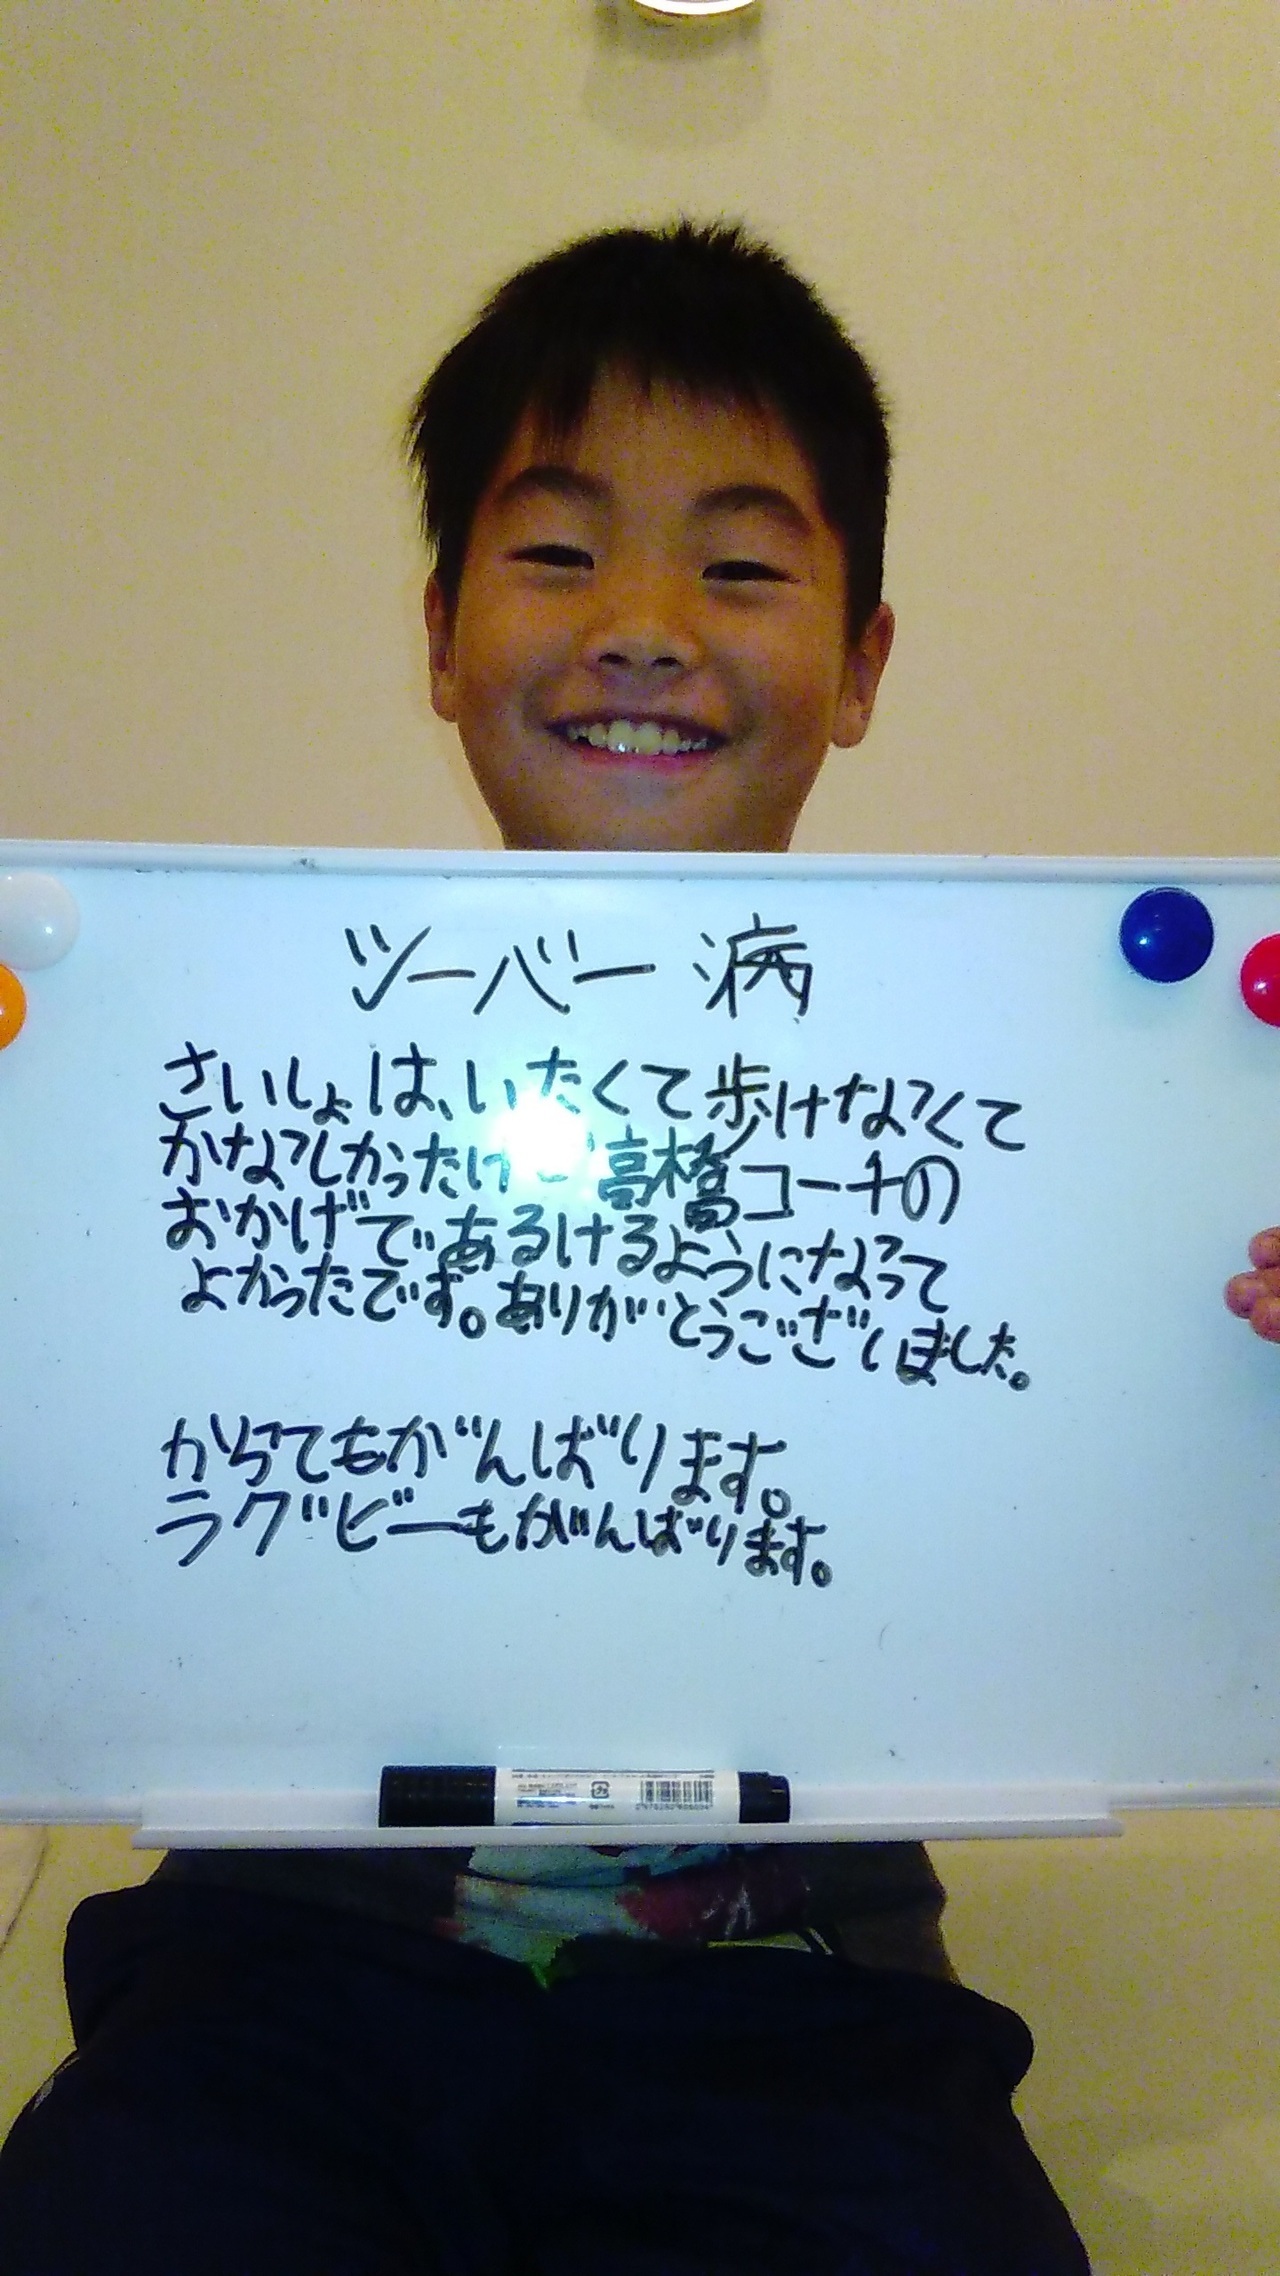 ツーバー病
さいしょは、いたくて歩けなくて
かなしかったけど高橋コーチの
おかげであるけるようになって
よかったです。ありがとうございました。
からてもがんばります。
ラグビーもがんばります。